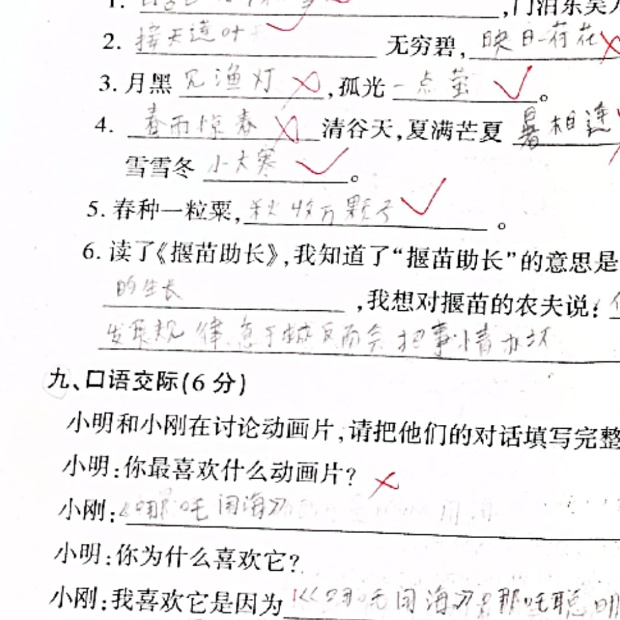 1. ,门泊东吴
2. 接天莲叶 无穷碧, 映日荷花
3. 月黑见渔灯,孤光一点萤。
4. 春雨惊春清谷天,夏满芒夏暑相连
雪雪冬小大寒。
5. 春种一粒粟,秋收万颗子。
6. 读了《揠苗助长》,我知道了“揠苗助长”的意思是
的生长,我想对揠苗的农夫说:
发展规律,急于 反而会把事情办坏
九、口语交际(6分)
小明和小刚在讨论动画片,请把他们的对话填写完整
小明:你最喜欢什么动画片?
小刚:《哪吒闹海》
小明:你为什么喜欢它?
小刚:我喜欢它是因为《哪吒闹海》 哪吒聪明